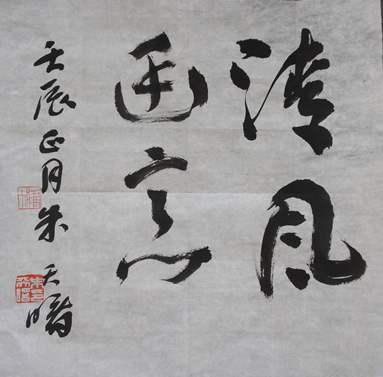 清風
意
壬辰正月朱天曙